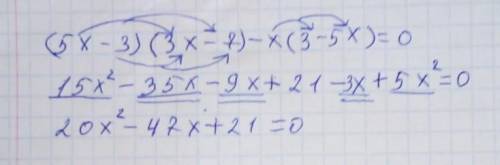 (5x-3)(3x-7)-x(3-5x)=0
15x²-35x-9x+21-3x+5x²=0
20x²-47x+21=0